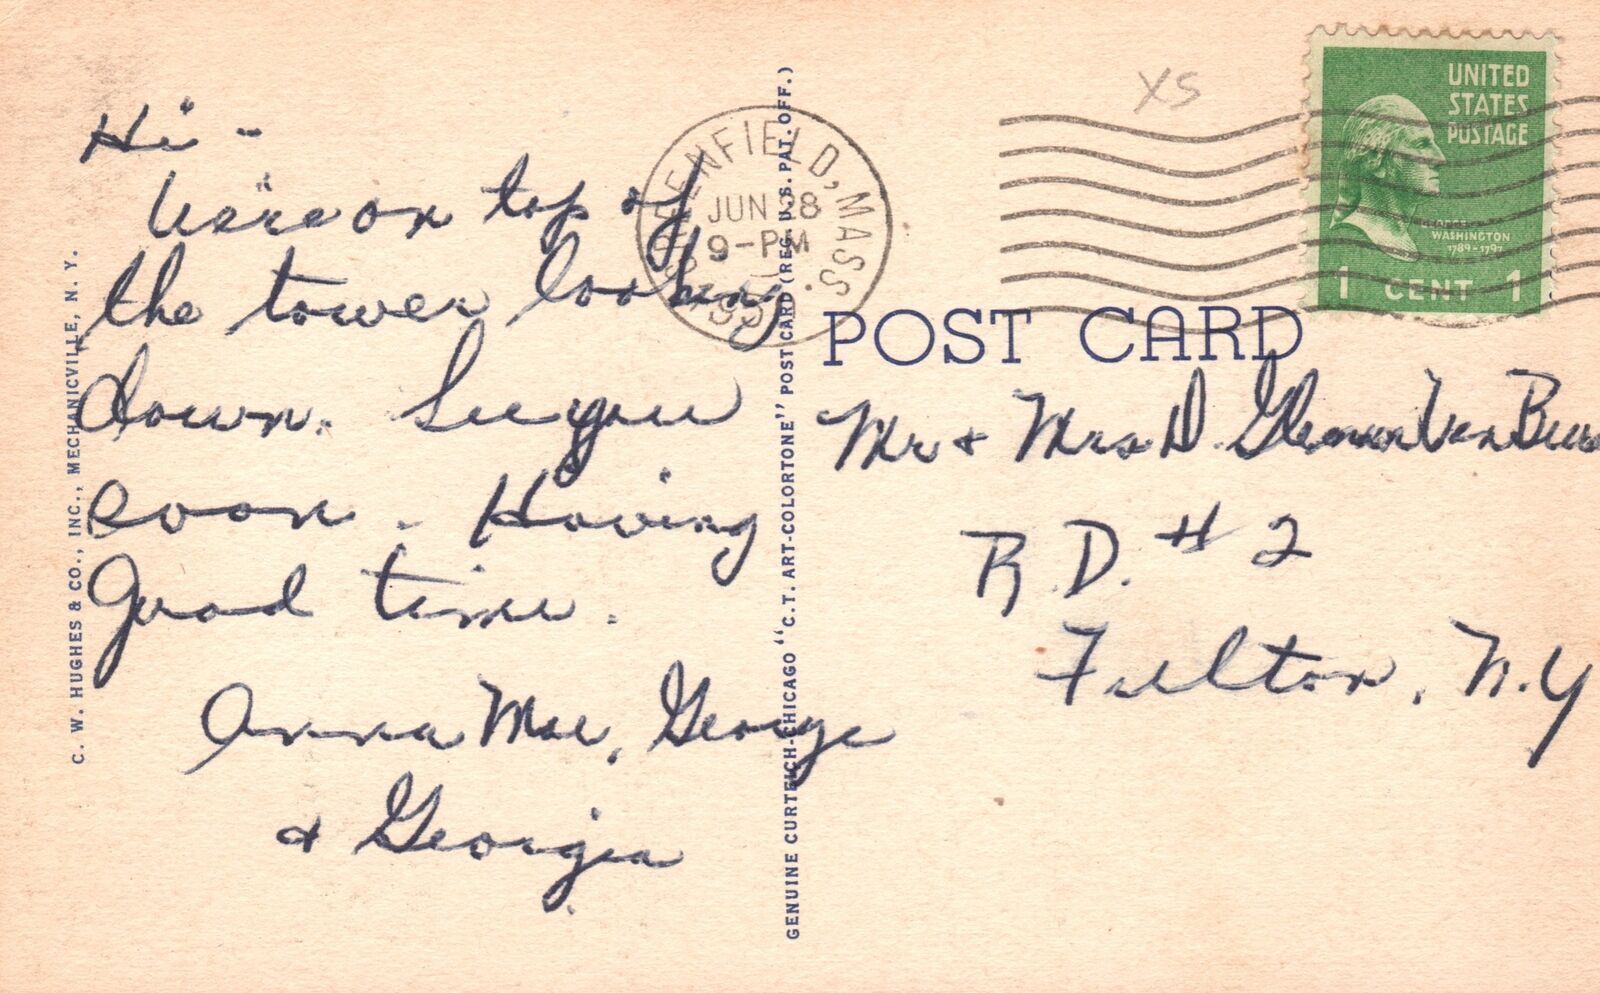 Hi -
We're on top of
the tower looking
down. See you
soon. Having
Good time.
Anna Mae, George
& Georgia
C. W. HUGHES & CO., INC., MECHANICVILLE, N. Y.
GENUINE CURTEICH-CHICAGO "C. T. ART-COLORTONE" POST CARD (REG. U. S. PAT. OFF.)
GREENFIELD, MASS
JUN 28
9-PM
XS
UNITED
STATES
POSTAGE
WASHINGTON
1789-1797
1 CENT 1
POST CARD
Mr & Mrs D. Van
R. D. # 2
Fulton, N.Y